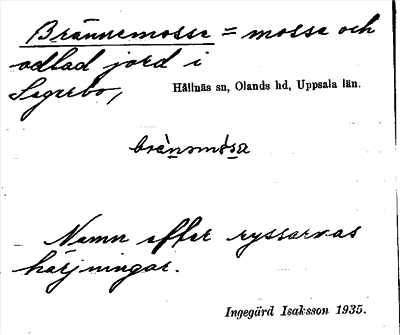 Brännemosse = mosse och
odlad jord i
Segerbo, Hållnäs sn, Olands hd, Uppsala län.
Namn efter ryssarnas
härjningar.
Ingegärd Isaksson 1935.